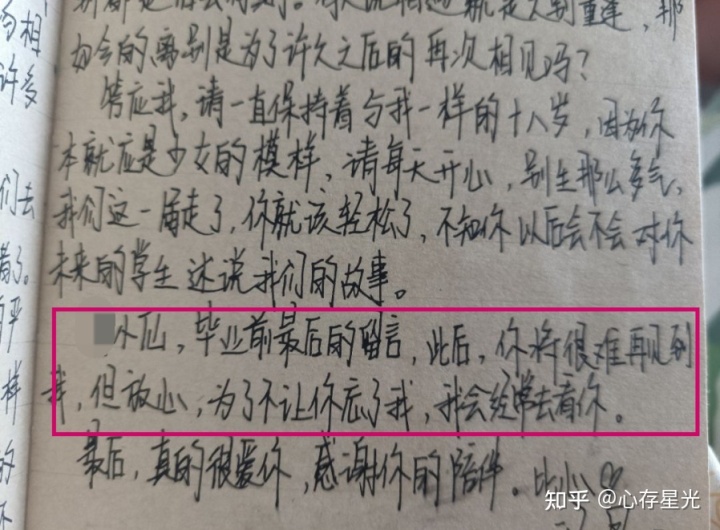 如今的离别是为了许久之后的再次相见吗？
答应我，请一直保持着与我一样的十八岁，因为你
本就应是少女的模样，请每天开心，别生那么多气，
我们这一届走了，你就该轻松了，不知你以后会不会对你
未来的学生述说我们的故事。
小仙，毕业前最后的留言，此后，你将很难再见到
我，但放心，为了不让你忘了我，我会经常去看你。
最后，真的很爱你，感谢你的陪伴。比心
知乎 @心存星光